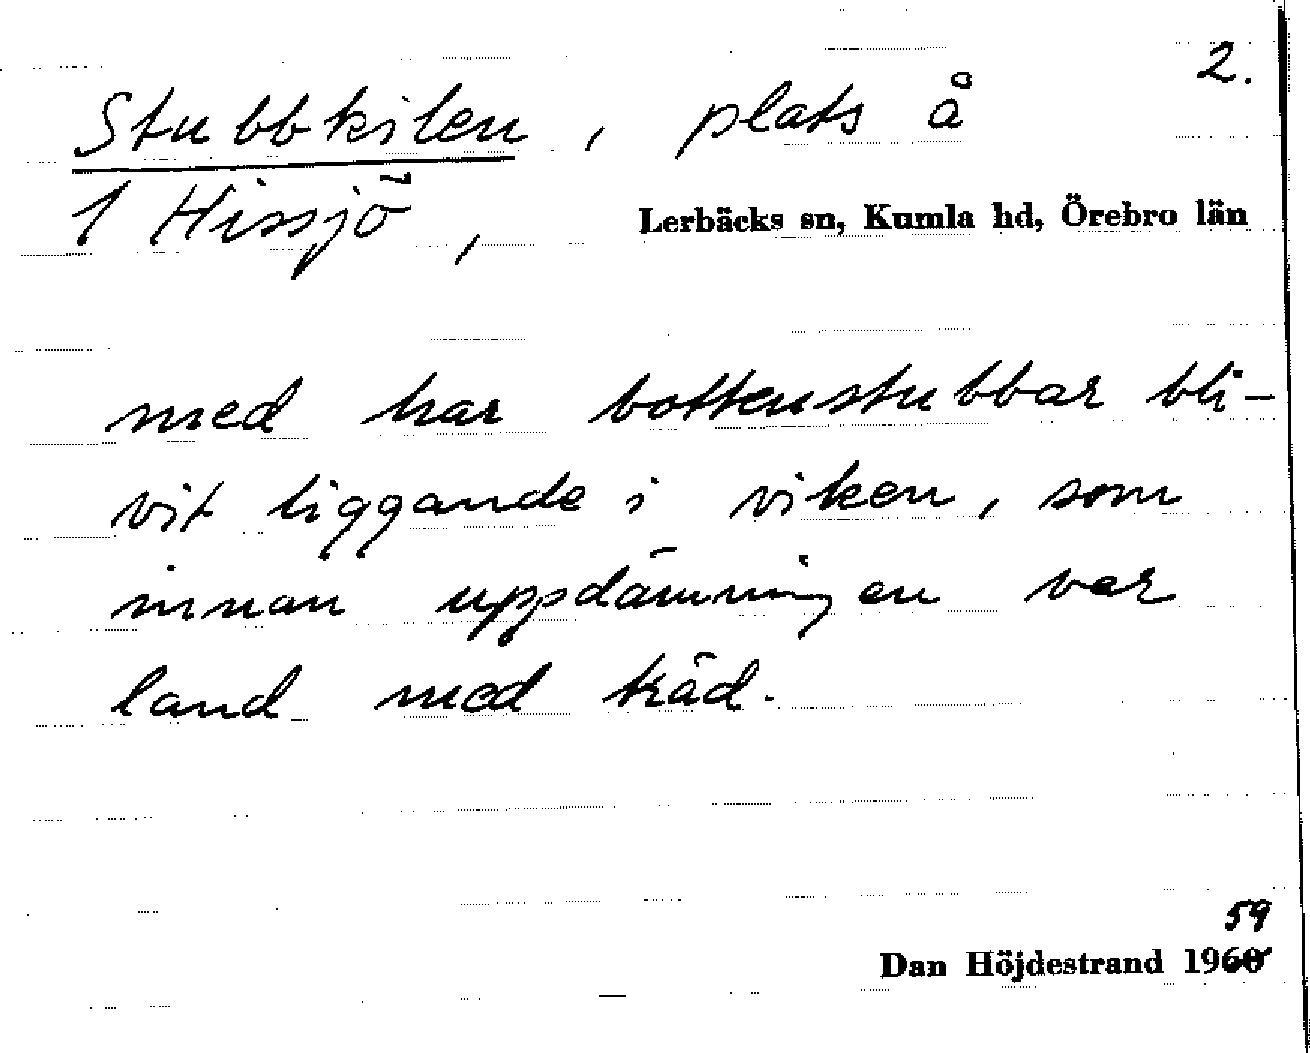 2.
Stubbkilen, plats å
1 Hissjö, Lerbäcks sn, Kumla hd, Örebro län
med har bottenstubbar bli-
vit liggande i viken, som
innan uppdämningen var
land med träd.
59
Dan Höjdestrand 1960